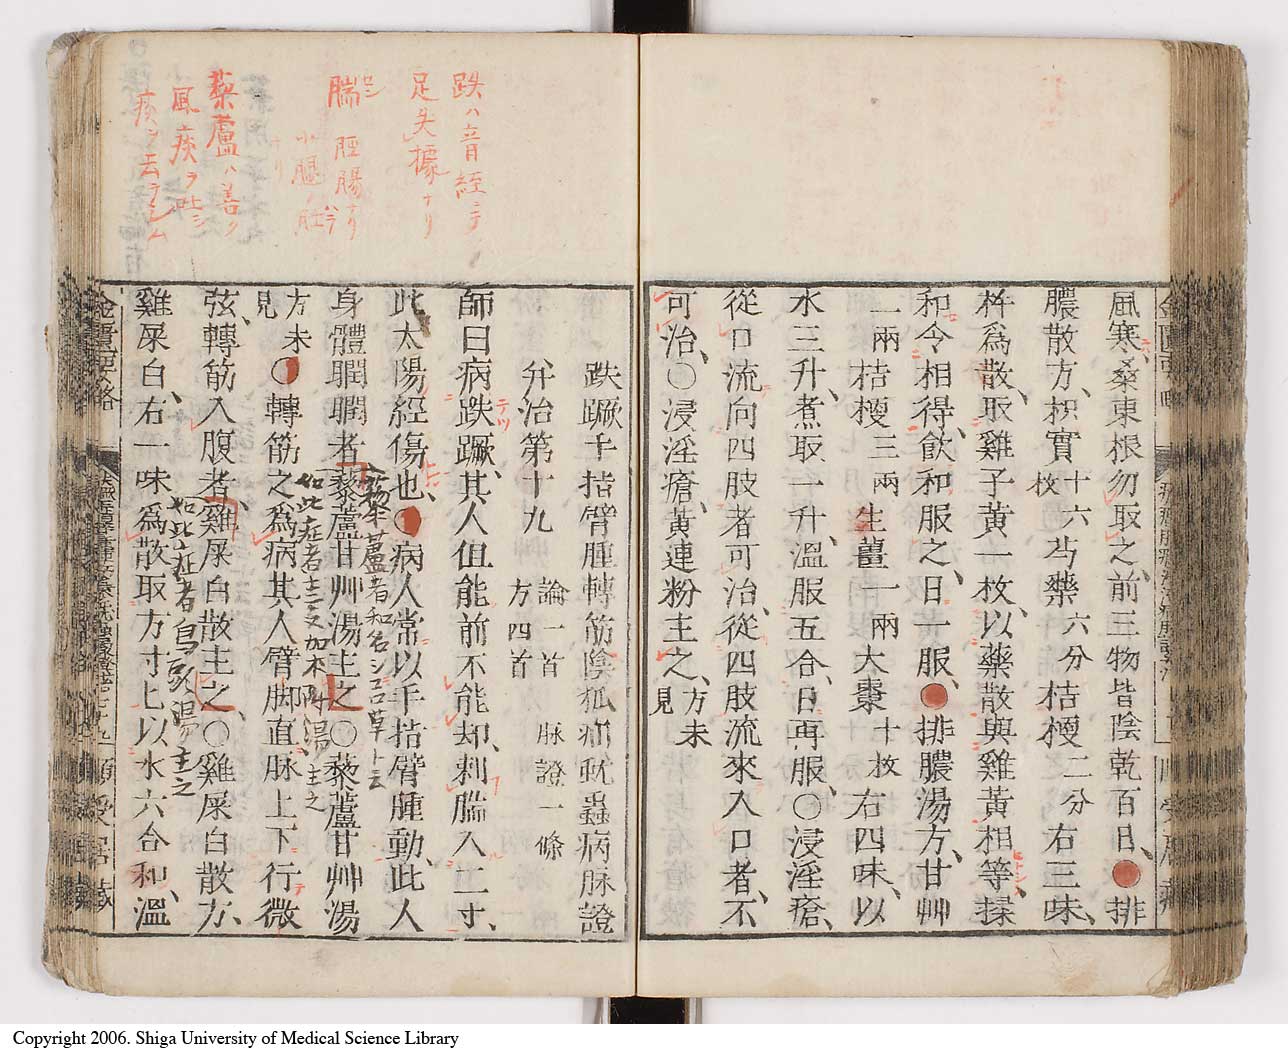 風寒、桑東根勿取之、前三物皆陰乾百日、●排
膿散方、枳實十六枚芍藥六分桔梗二分右三味、
杵爲散、取雞子黃一枚、以藥散與雞黃相等、揉
和令相得、飮和服之、日一服、●排膿湯方、甘艸
二兩桔梗三兩生薑一兩大棗十枚右四味、以
水三升、煮取一升、溫服五合、日再服、○浸淫瘡、
從口流向四肢者可治、從四肢流來入口者、不
可治、○浸淫瘡、黃連粉主之、方未見
趺蹶手指臂腫轉筋陰狐疝蚘蟲病脉證
幷治第十九 論一首 脉證一條
方四首
師曰病趺蹶、其人但能前不能却、刺腨入二寸、
此太陽經傷也、●病人常以手指臂腫動、此人
身體瞤瞤者、藜蘆甘艸湯主之○藜蘆甘艸湯
方未見●轉筋之爲病其人臂脚直、脉上下行微
弦、轉筋入腹者、雞屎白散主之、○雞屎白散方、
雞屎白、右一味爲散取方寸匕以水六合和、溫
趺ハ
足失據ナリ
腨 脛腸ナリ
藜蘆ハ善ク
風痰ヲ吐シ
痰ヲ云ラシム
如此症者主之
如此症者烏頭湯主之
Copyright 2006. Shiga University of Medical Science Library